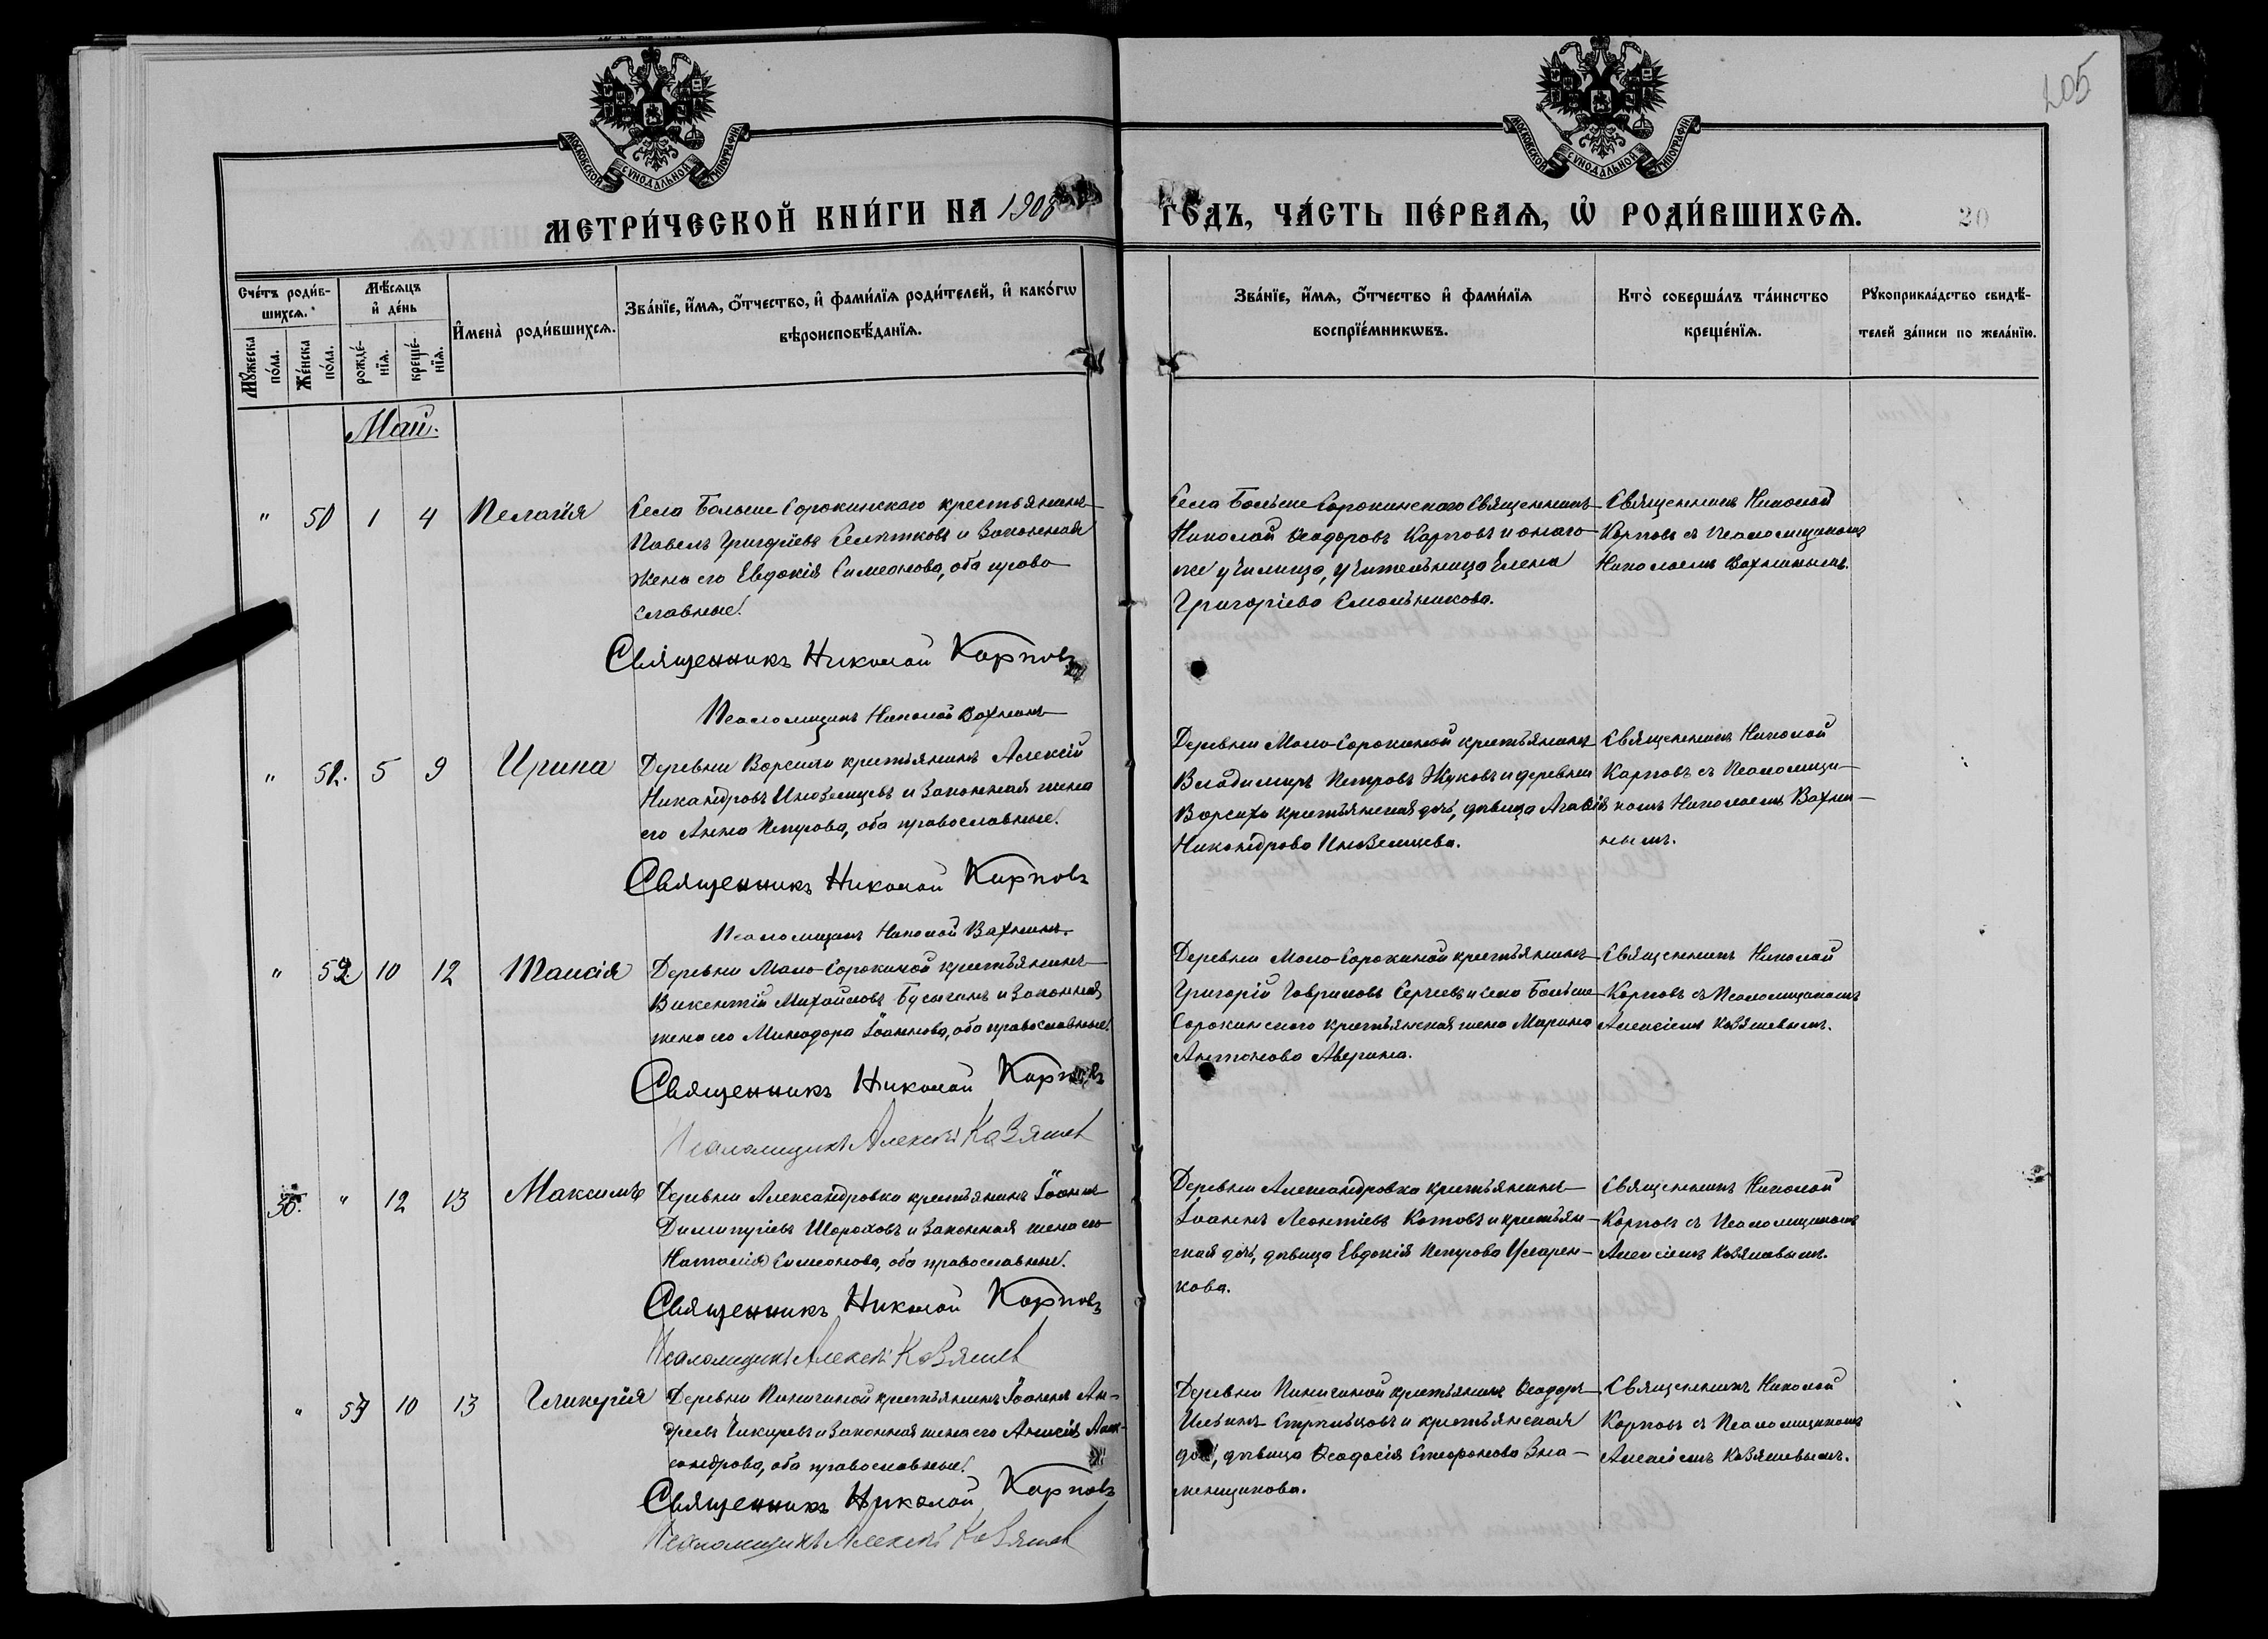 205
МОСКОВСКОЙ СУНОДАЛЬНОЙ ТИПОГРАФІИ
МОСКОВСКОЙ СУНОДАЛЬНОЙ ТИПОГРАФІИ
МЕТРИ́ЧЕСКОЙ КНИ́ГИ НА 1908
ГОДЪ, ЧА́СТЬ ПЕ́РВАѦ, Ѽ РОДИ́ВШИХСѦ.
20
Сче́тъ роди́в-
шихсѧ.
Мꙋ́жеска
по́ла.
Же́нска
по́ла.
Мѣ́сѧцъ
и҆ де́нь
рожде́-
нїѧ.
креще́-
нїѧ.
И҆мена̀ роди́вшихсѧ.
Зва́нїе, и҆́мѧ, ѻ҆́тчество, и҆ фами́лїѧ роди́телей, и҆ како́гѡ
вѣроисповѣ́данїѧ.
Зва́нїе, и҆́мѧ, ѻ҆́тчество и҆ фами́лїѧ
воспрїе́мникѡвъ.
Кто̀ соверша́лъ та́инство
креще́нїѧ.
Рꙋкоприкла́дство свидѣ́-
телей за́писи по жела́нїю.
Май.
" 50 1 4 Пелагія
Села Больше Сорокинскаго крестьянинъ
Павелъ Григоріевъ и законная
жена его Евдокія Симеонова, оба право
славные.
Священникъ Николай Карповъ
Псаломщикъ Николай Вахнинъ
Села Больше Сорокинскаго Священникъ
Николай Ѳеодоровъ Карповъ и онаго
же училища, учительница Елена
Григоріева Смольникова.
Священникъ Николай
Карповъ съ Псаломщикомъ
Николаемъ Вахнинымъ.
" 51. 5 9 Ирина
Деревни Ворсихи крестьянинъ Алексій
Никандровъ Иноземцевъ и законная жена
его Анна Петрова, оба православные.
Священникъ Николай Карповъ
Псаломщикъ Николай Вахнинъ.
Деревни Мало-Сорокиной крестьянинъ
Владимиръ Петровъ Жуковъ и деревни
Ворсихи крестьянская дочь, дѣвица Агаѳія
Никандрова Иноземцева.
Священникъ Николай
Карповъ съ Псаломщи-
комъ Николаемъ Вахни-
нымъ.
" 52 10 12 Таисія
Деревни Мало-Сорокиной крестьянинъ
Викентій Михайловъ Бусыгинъ и законная
жена его Минодора Іоаннова, оба православные.
Священникъ Николай Карповъ
Псаломщикъ Алексѣй Казяшев
Деревни Мало-Сорокиной крестьянинъ
Григорій Гавриловъ Сергеевъ и села Больше
Сорокинского крестьянская жена Марина
Антонова Аверина.
Священникъ Николай
Карповъ съ Псаломщикомъ
Алексіемъ Казяшевымъ.
36. " 12 13 Максимъ
Деревни Александровки крестьянинъ Іоаннъ
Димитріевъ Шороховъ и законная жена его
Наталія Симеонова, оба православные.
Священникъ Николай Карповъ
Псаломщикъ Алексѣй Казяшев
Деревни Александровки крестьянинъ
Іоаннъ Леонтіевъ Котовъ и крестьян-
ская дочь, дѣвица Евдокія Петрова
кова.
Священникъ Николай
Карповъ съ Псаломщикомъ
Алексіемъ Казяшевымъ.
" 53 10 13 Гликерія
Деревни Пинигиной крестьянинъ Іоаннъ Ан-
дреевъ Чикиревъ и законная жена его Анисія Алек-
сандрова, оба православные.
Священникъ Николай Карповъ
Псаломщикъ Алексѣй Казяшев
Деревни Пинигиной крестьянинъ Ѳеодоръ
Ильинъ Стрѣльцовъ и крестьянская
дочь, дѣвица Ѳеодосія Стефанова Зна-
менщикова.
Священникъ Николай
Карповъ съ Псаломщикомъ
Алексіемъ Казяшевымъ.